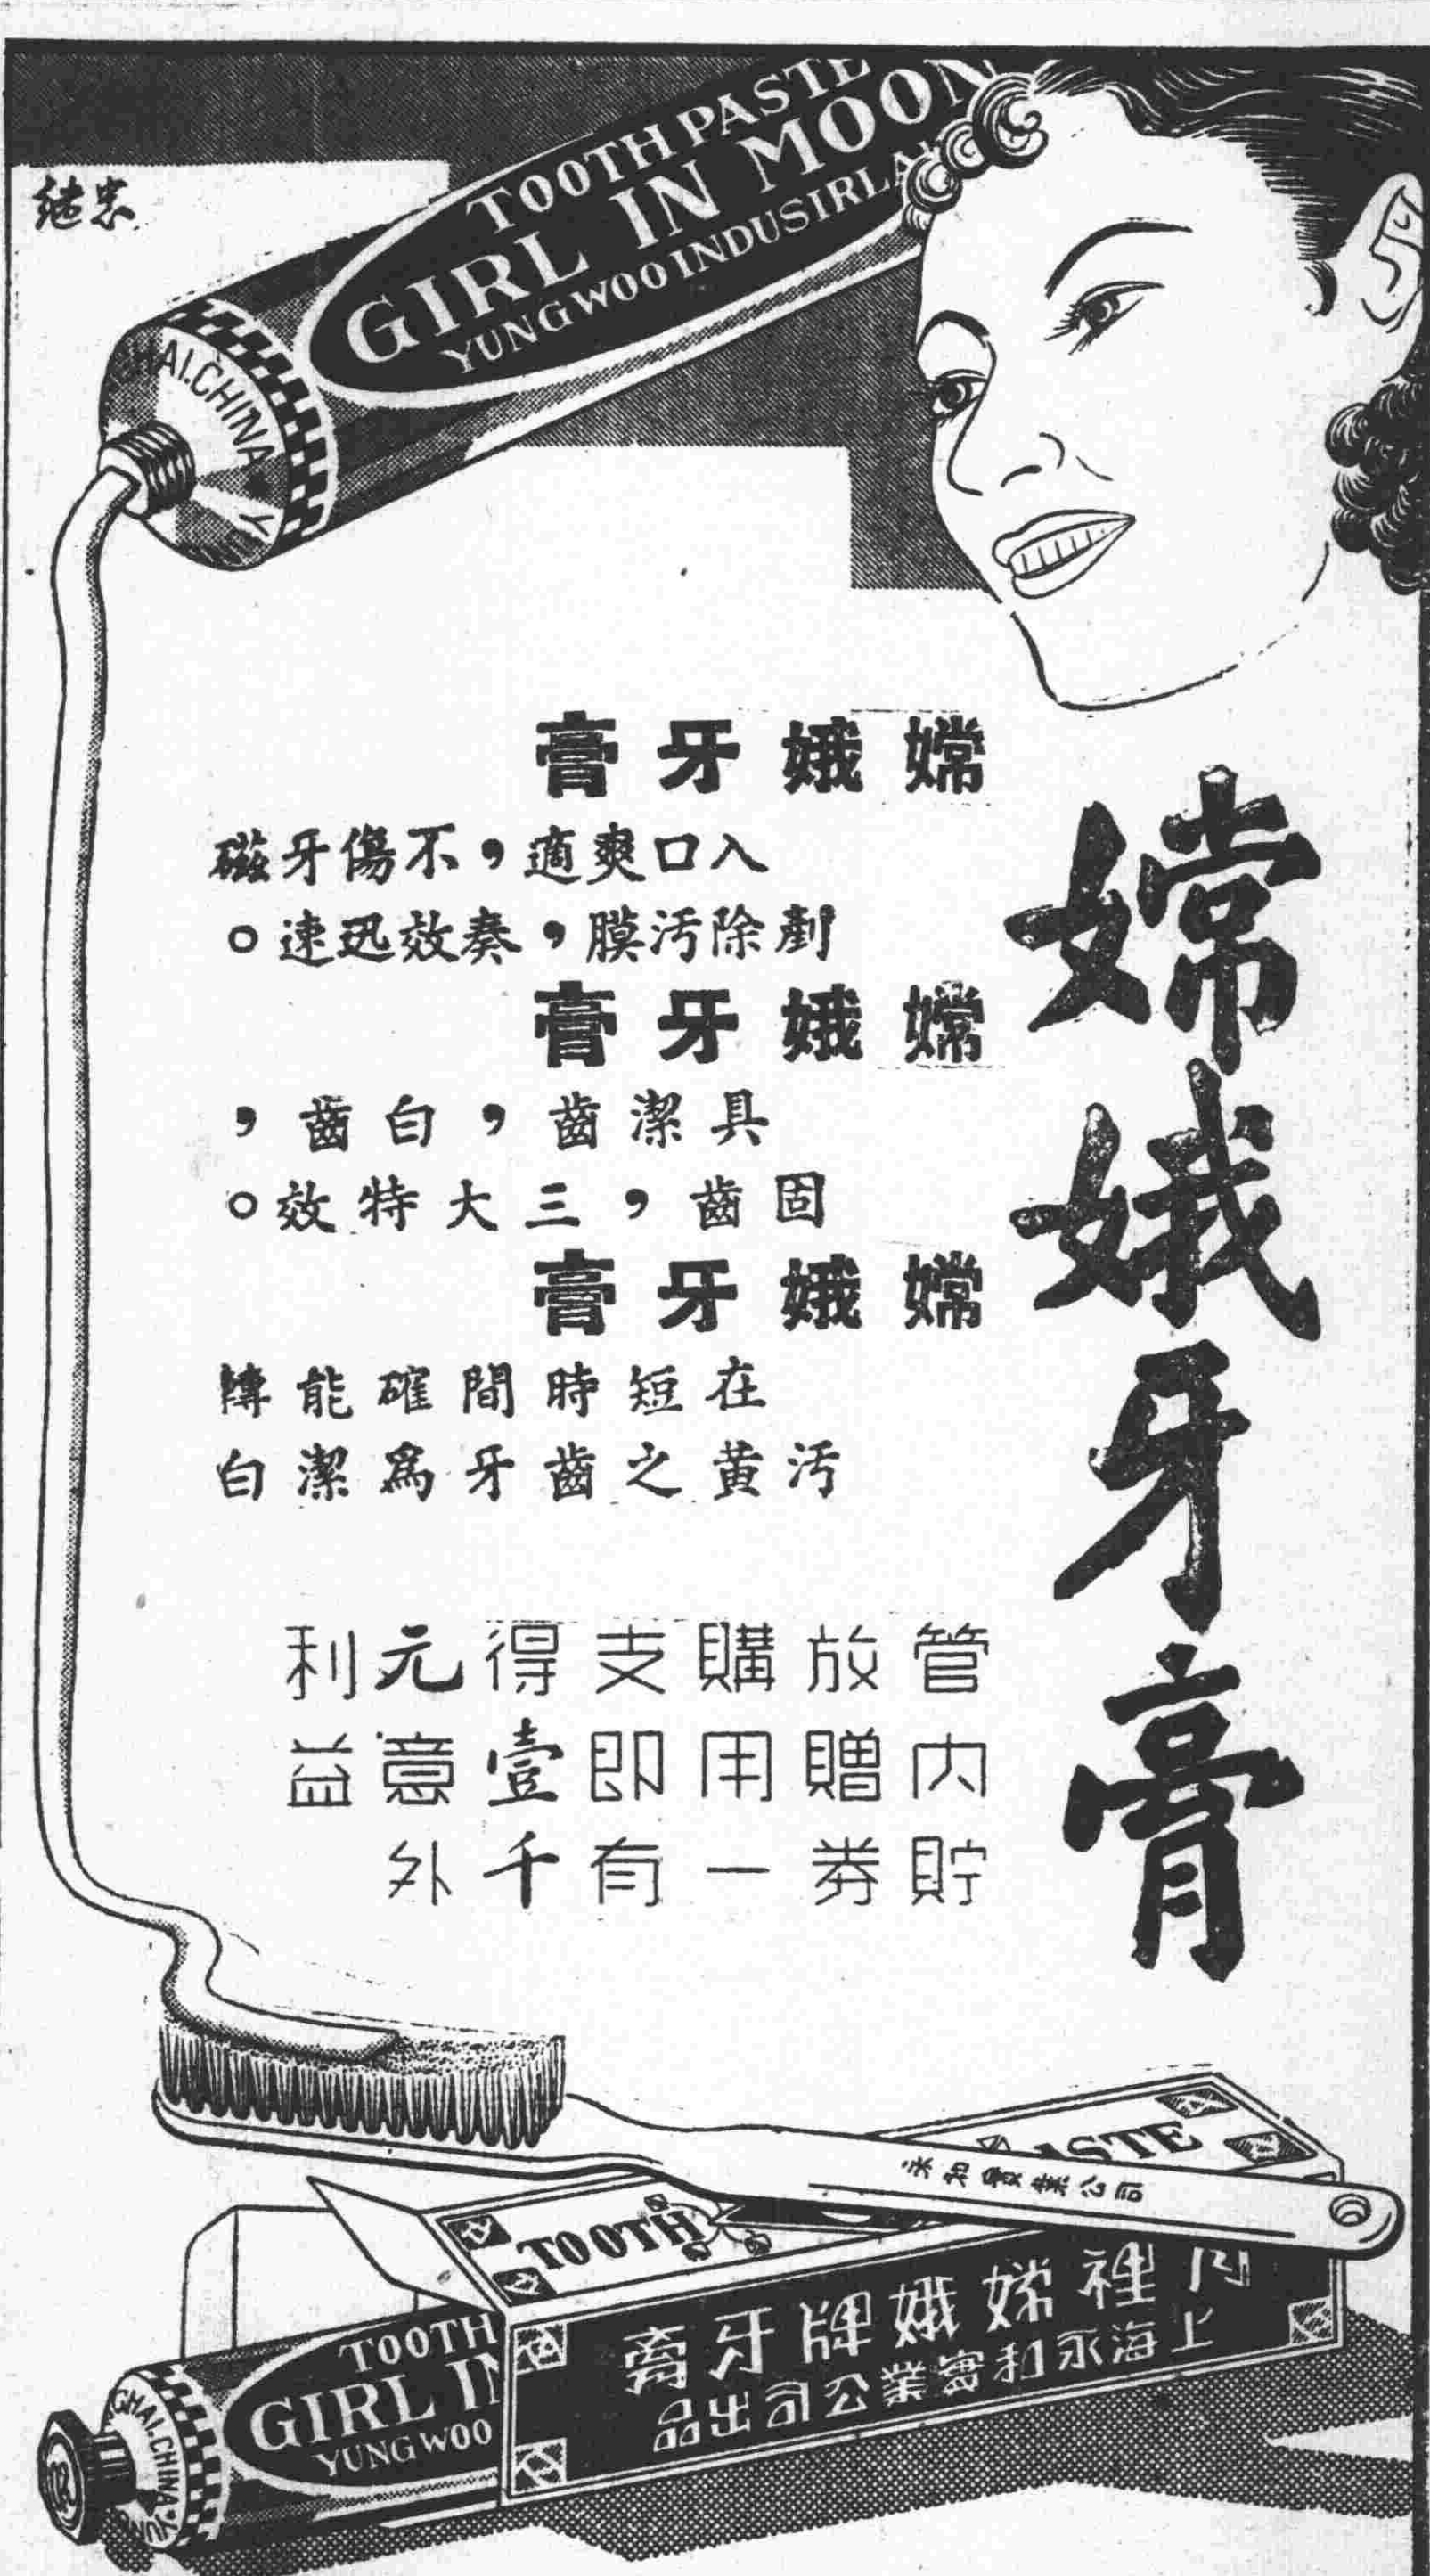 TOOTH PASTE
GIRL IN MOON
YUNGWOO INDUSIRLA
HAI.CHINA
嫦娥牙膏
嫦娥牙膏
入口爽適，不傷牙磁
剷除汚膜，奏效迅速。
嫦娥牙膏
具潔齒，白齒，
固齒，三大特效。
嫦娥牙膏
在短時間確能轉
汚黃之齒牙為潔白
管內貯
放贈券
購用一
支即有
得壹千
元意外
利益
永和實業公司
TOOTH
ASTE
月裡嫦娥牌牙膏
上海永和實業公司出品
TOOTH
GIRL IN
YUNGWOO
GHAI.CHINA